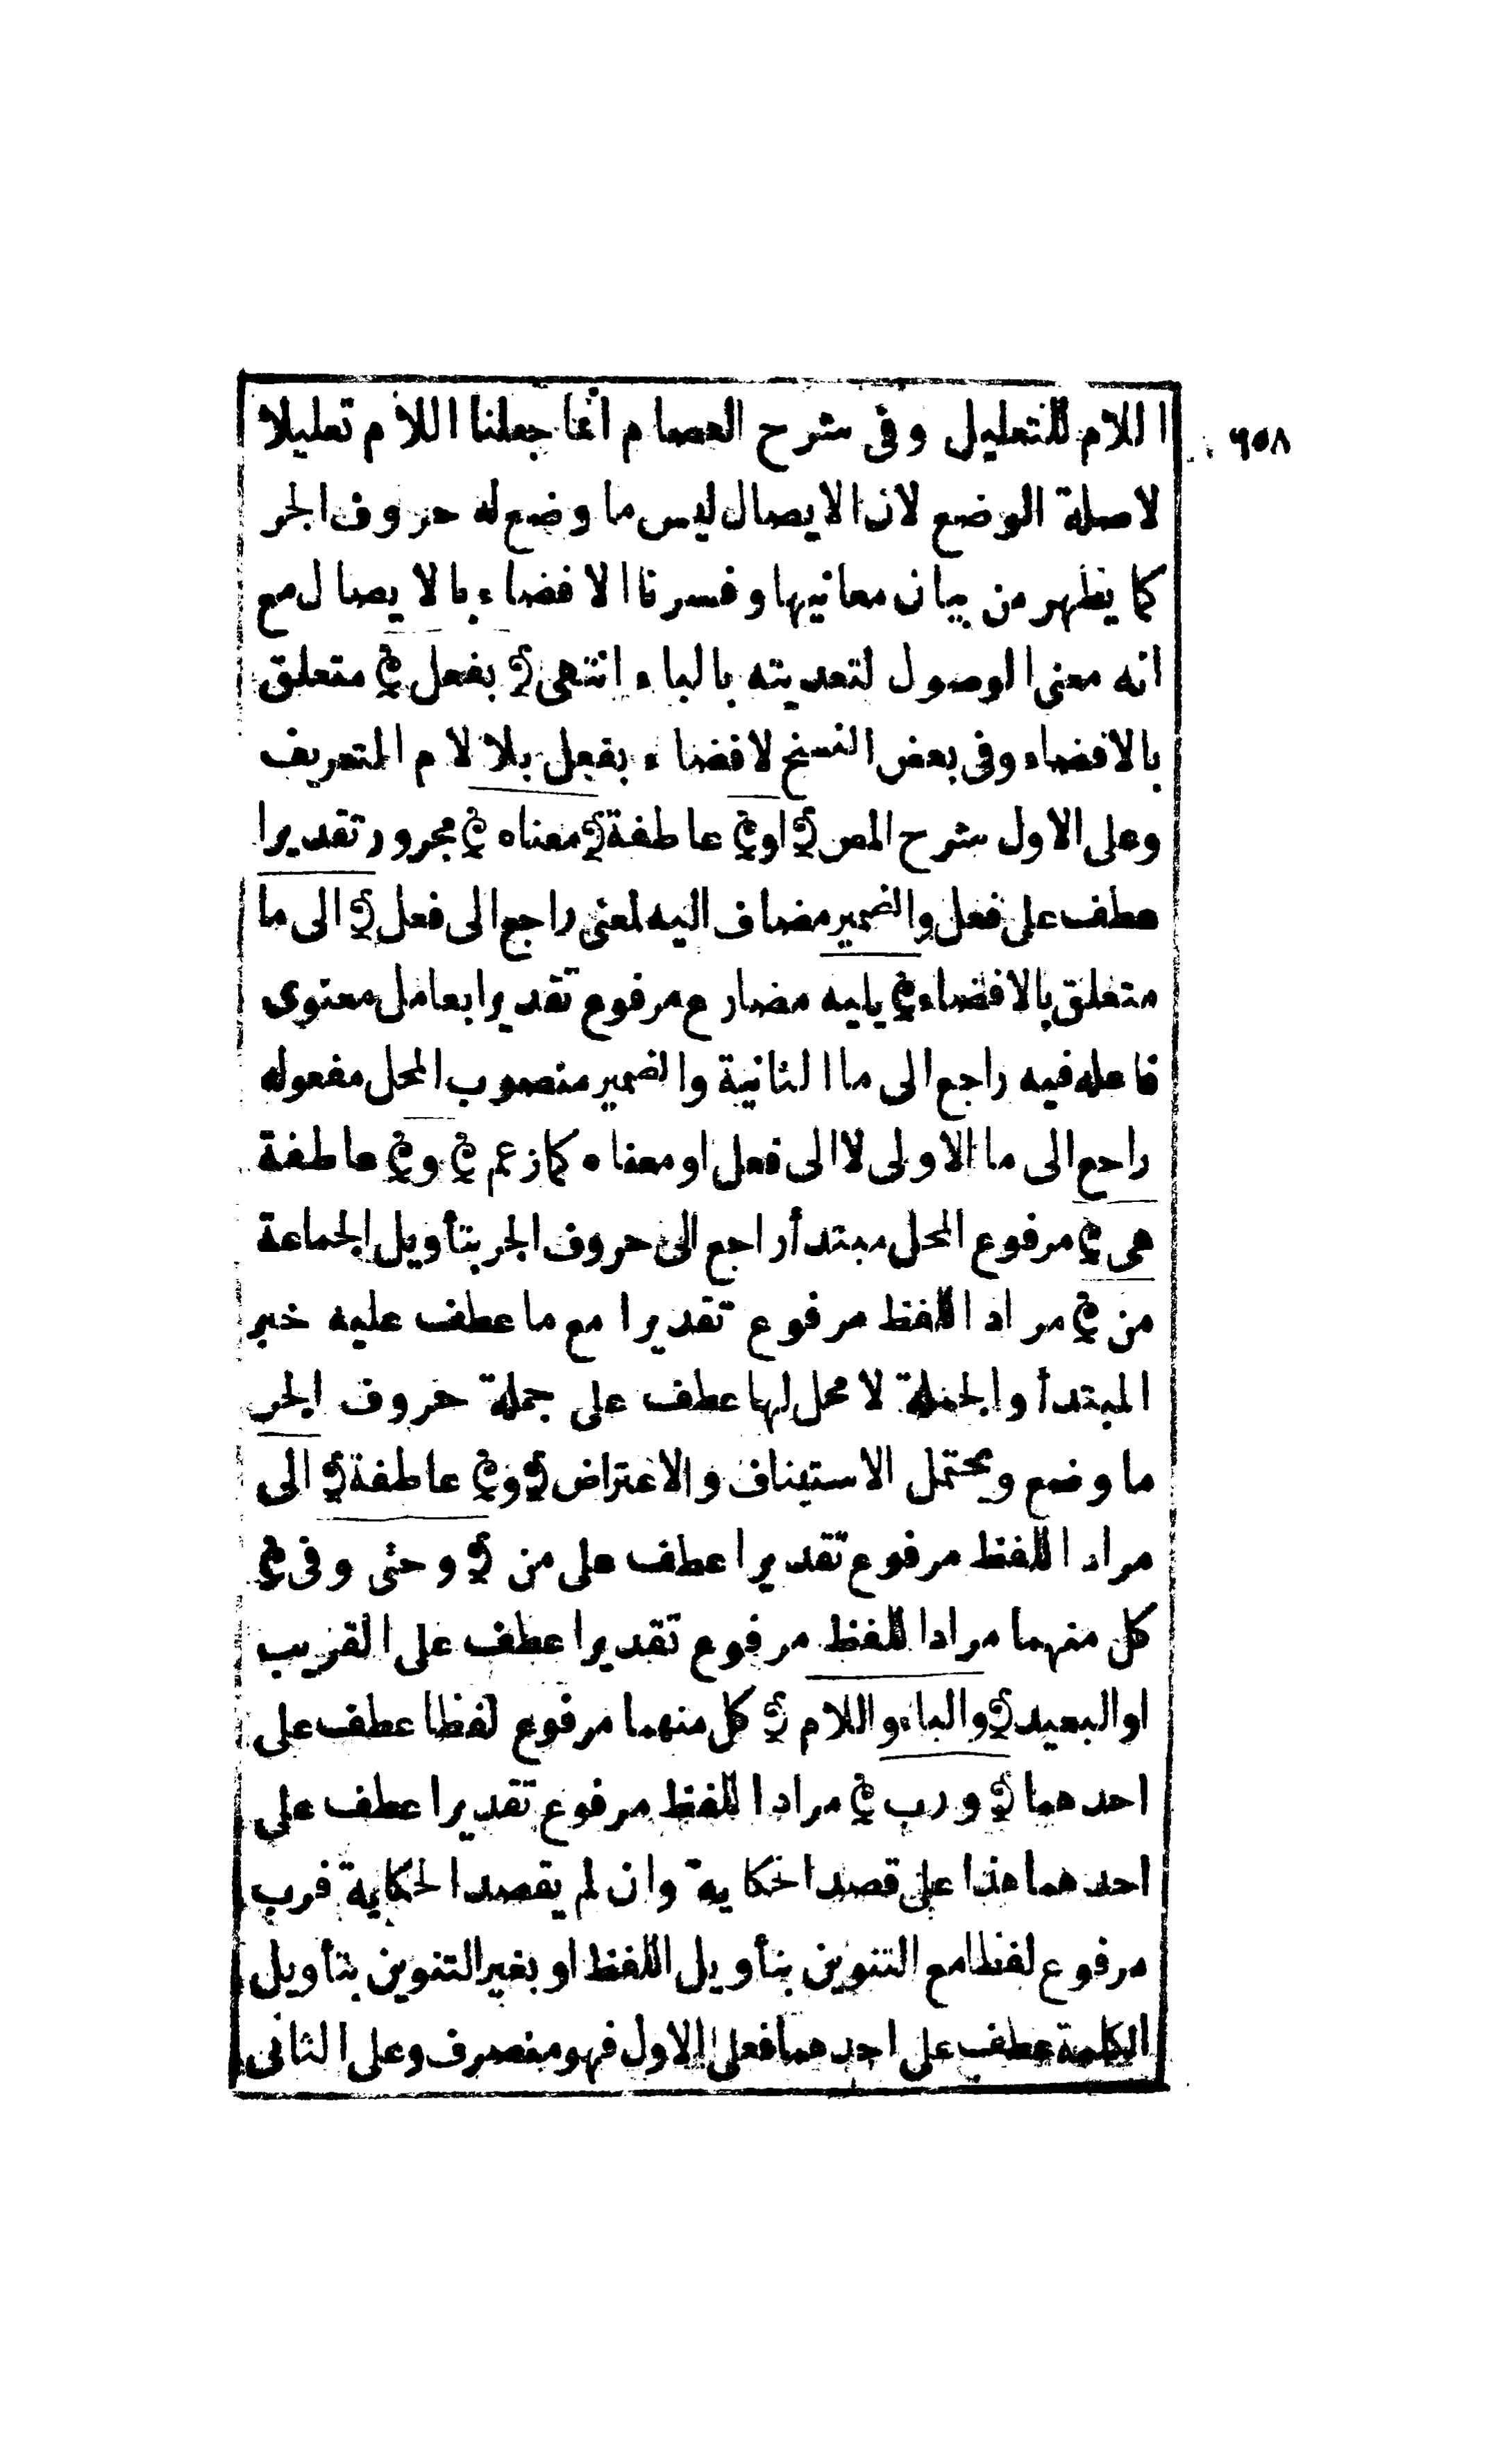 ٦٥٨
اللام للتعليل وفى شرح العصام انما جعلنا اللام تعليلا
لاصلة الوضع لان الايصال ليس ما وضع له حروف الجر
كما يظهر من بيان معانيها وفسرنا الافضاء بالايصال مع
انه معنى الوصول لتعديته بالباء انتهى ﴿ بفعل ﴾ متعلق
بالافضاء وفى بعض النسخ لافضاء بفعل بلا لام التعريف
وعلى الاول شرح المص ﴿ او ﴾ عاطفة ﴿ معناه ﴾ مجرور تقديرا
عطف على فعل والضمير مضاف اليه لمعنى راجع الى فعل ﴿ الى ما
متعلق بالافضاء ﴾ يليه مضارع مرفوع تقديرا بعامل معنوى
فاعله فيه راجع الى ما الثانية والضمير منصوب المحل مفعوله
راجع الى ما الاولى لا الى فعل او معناه كما زعم ﴿ و ﴾ عاطفة
هى ﴾ مرفوع المحل مبتدأ راجع الى حروف الجر بتأويل الجماعة
من ﴾ مراد اللفظ مرفوع تقديرا مع ما عطف عليه خبر
المبتدأ والجملة لا محل لها عطف على جملة حروف الجر
ما وضع ويحتمل الاستيناف والاعتراض ﴿ و ﴾ عاطفة ﴿ الى
مراد اللفظ مرفوع تقديرا عطف على من ﴿ وحتى وفى ﴾
كل منهما مراد اللفظ مرفوع تقديرا عطف على القريب
او البعيد ﴿ والباء واللام ﴾ كل منهما مرفوع لفظا عطف على
احدهما ﴿ ورب ﴾ مراد اللفظ مرفوع تقديرا عطف على
احدهما هذا على قصد الحكاية وان لم يقصد الحكاية فرب
مرفوع لفظا مع التنوين بتأويل اللفظ او بغير التنوين بتأويل
الكلمة عطف على احدهما فعلى الاول فهو منصرف وعلى الثانى